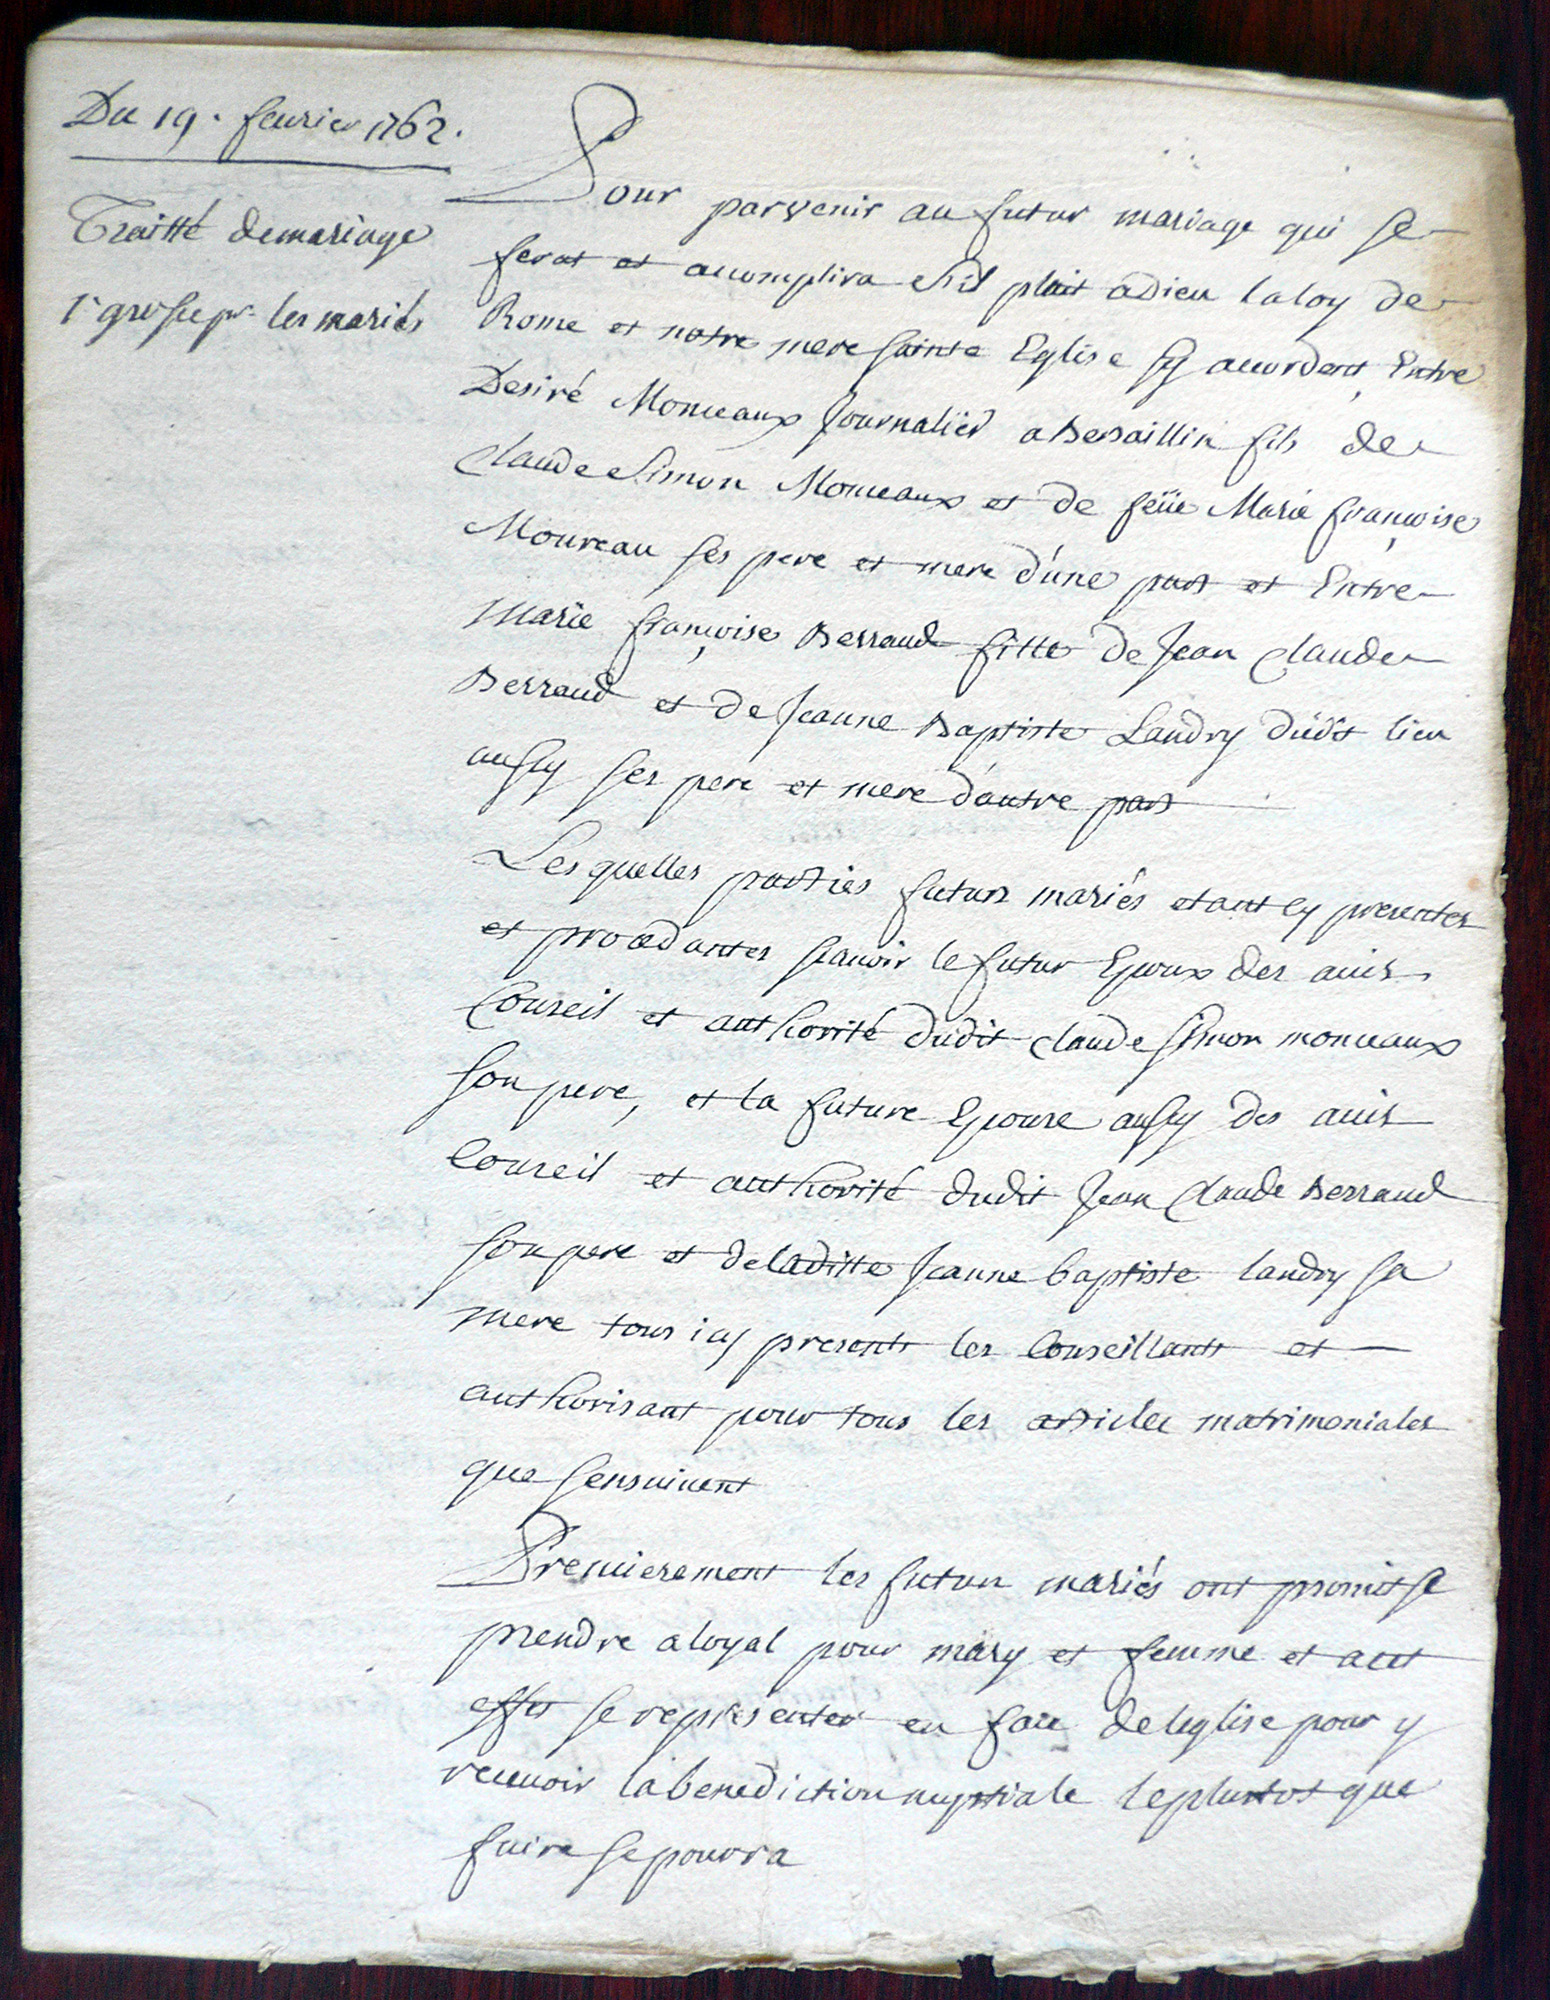 Du 19. feurier 1762.
Traitté de mariage
1e grosse pr. les mariés
Pour parvenir au futur mariage qui se
ferat et acomplira s'il plait a Dieu la loy de
Rome et notre mere sainte Eglise sy accordent, Entre
Desiré Monceaux Journaliër a Bersaillin fils de
Claude Simon Monceaux et de feüe Marie françoise
Moureau ses pere et mere d'une part et Entre
Marie françoise Berraud fille de Jean Claude
Berraud et de Jeanne Baptiste Landry dudt lieu
aussy ses pere et mere d'autre part
Les quelles parties futurs mariés etant cy presentes
et procedantes scauoir le futur Epoux des auis
Conseil et authorité dudit Claude Simon monceaux
son pere, et la future Epouse aussy des auis
Conseil et authorité dudit Jean Claude Berraud
son pere et de laditte Jeanne baptiste landry sa
mere tous icy presents les Conseillants et
authorisant pour tous les articles matrimoniales
que sensuiuent
Premierement les futurs mariés ont promit se
prendre a loyal pour mary et femme et a cet
effet se representer en face de leglise pour y
receuoir la benediction nuptiale le plustot que
faire se pourra